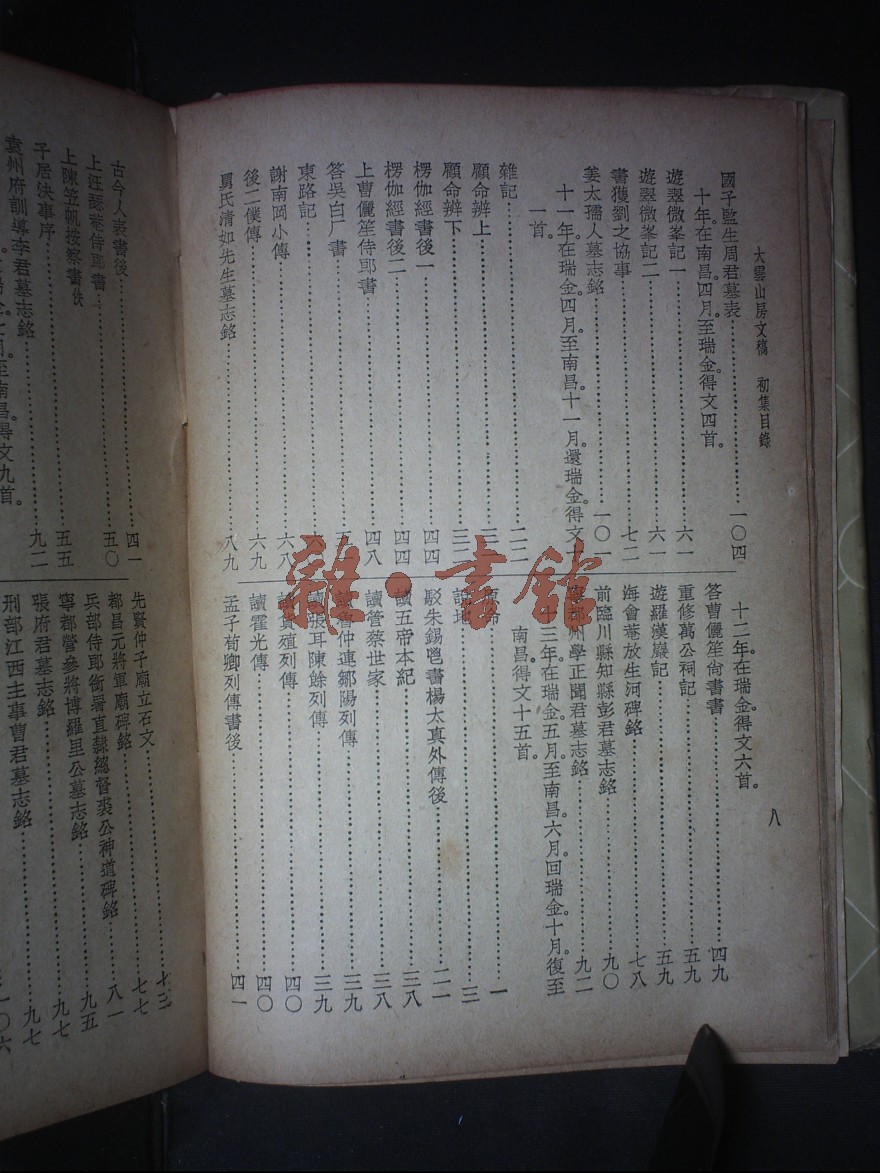 大雲山房文稿　初集目錄
八
國子監生周君墓表……一〇四
十年。在南昌。四月。至瑞金。得文四首。
遊翠微峯記一……六一
遊翠微峯記二……六一
書獲劉之協事……七二
姜太孺人墓志銘……一〇一
十一年。在瑞金。四月。至南昌。十一月。還瑞金。得文十
一首。
雜記……二二
顧命辨上……三一
顧命辨下……三二
楞伽經書後一……四四
楞伽經書後二……四四
上曹儷笙侍郎書……四八
答吳白厂書
東路記
謝南岡小傳……六八
後二僕傳……六九
舅氏清如先生墓志銘……八九
十二年。在瑞金。得文六首。
答曹儷笙尚書書……四九
重修萬公祠記……五九
遊羅漢巖記……五九
海會菴放生河碑銘……七八
前臨川縣知縣彭君墓志銘……九〇
寧都州學正聞君墓志銘……九二
十三年。在瑞金。五月。至南昌。六月。回瑞金。十月。復至
南昌。得文十五首。
原命……一
說地……三
駁朱錫鬯書楊太真外傳後……二一
讀五帝本紀……三八
讀管蔡世家……三八
讀魯仲連鄒陽列傳……三九
讀張耳陳餘列傳……三九
讀貨殖列傳……四〇
讀霍光傳……四〇
孟子荀卿列傳書後……四一
古今人表書後……四一
上汪瑟菴侍郎書……五〇
上陳笠帆按察書佚……五五
子居決事序
袁州府訓導李君墓志銘……九二
先賢仲子廟立石文
都昌元將軍廟碑銘……七七
兵部侍郎銜署直隸總督裘公神道碑銘……八一
寧都營參將博羅里公墓志銘……九五
張府君墓志銘……九七
刑部江西主事曹君墓志銘……九七
雜·書館